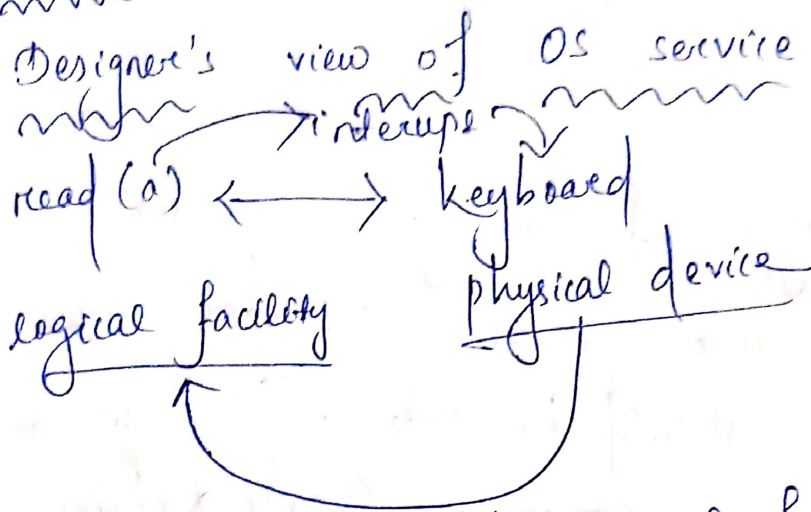 Designer's view of OS service
interups
read (a) ⟷ keyboard
logical facility physical device